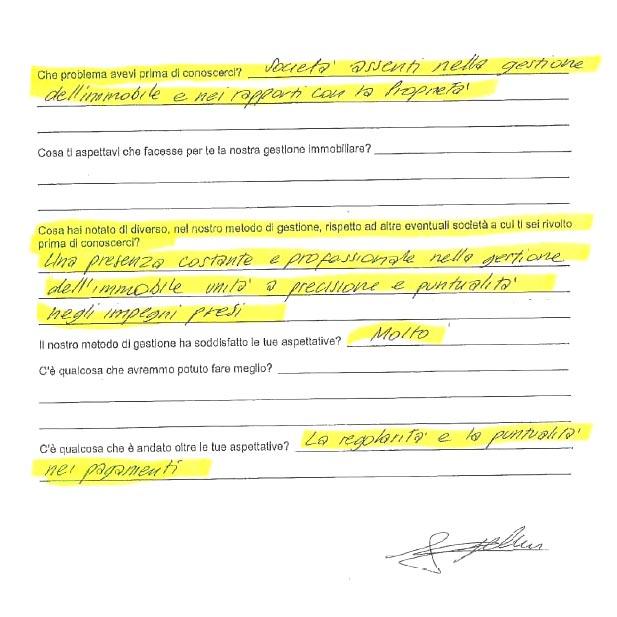 Che problema avevi prima di conoscerci? Società assenti nella gestione
dell'immobile e nei rapporti con la Proprietà
Cosa ti aspettavi che facesse per te la nostra gestione immobiliare?
Cosa hai notato di diverso, nel nostro metodo di gestione, rispetto ad altre eventuali società a cui ti sei rivolto
prima di conoscerci?
Una presenza costante e professionale nella gestione
dell'immobile unità a precisione e puntualità
negli impegni presi
Il nostro metodo di gestione ha soddisfatto le tue aspettative? Molto
C'è qualcosa che avremmo potuto fare meglio?
C'è qualcosa che è andato oltre le tue aspettative? La regolarità e la puntualità
nei pagamenti